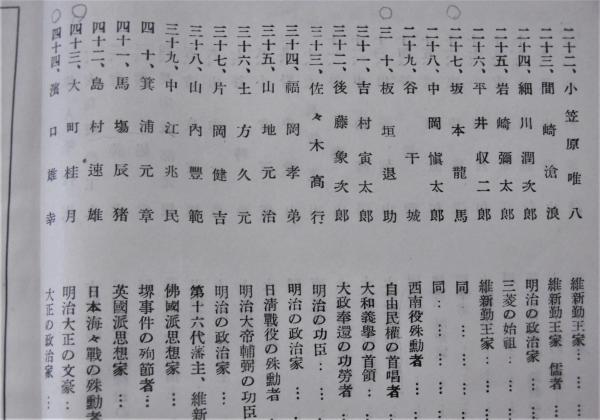 二十二、小笠原唯八 維新勤王家…
二十三、間崎滄浪 維新勤王家 儒者…
二十四、細川潤次郎 明治の政治家…
二十五、岩崎彌太郎 三菱の始祖…
二十六、平井収二郎 維新勤王家…
二十七、坂本龍馬 同…
二十八、中岡愼太郎 同…
二十九、谷干城 西南役殊勳者…
三十、板垣退助 自由民權の首唱者…
三十一、吉村寅太郎 大和義擧の首領…
三十二、後藤象次郎 大政奉還の功勞者
三十三、佐々木高行 明治の功臣…
三十四、福岡孝弟 明治の政治家…
三十五、山地元治 日清戰役の殊勳者
三十六、土方久元 明治大帝輔弼の功臣
三十七、片岡健吉 明治の政治家…
三十八、山內豐範 第十六代藩主、維新
三十九、中江兆民 佛國派思想家…
四十、箕浦元章 堺事件の殉節者…
四十一、馬塲辰猪 英國派思想家…
四十二、島村速雄 日本海々戰の殊勳者
四十三、大町桂月 明治大正の文豪…
四十四、濱口雄幸 大正の政治家…